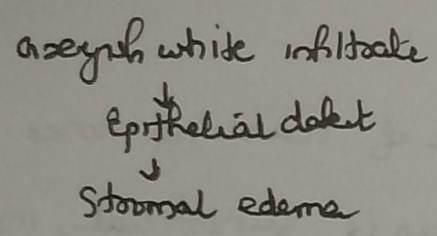 greyish white infiltrate
↓
Epithelial defect
↓
Stromal edema